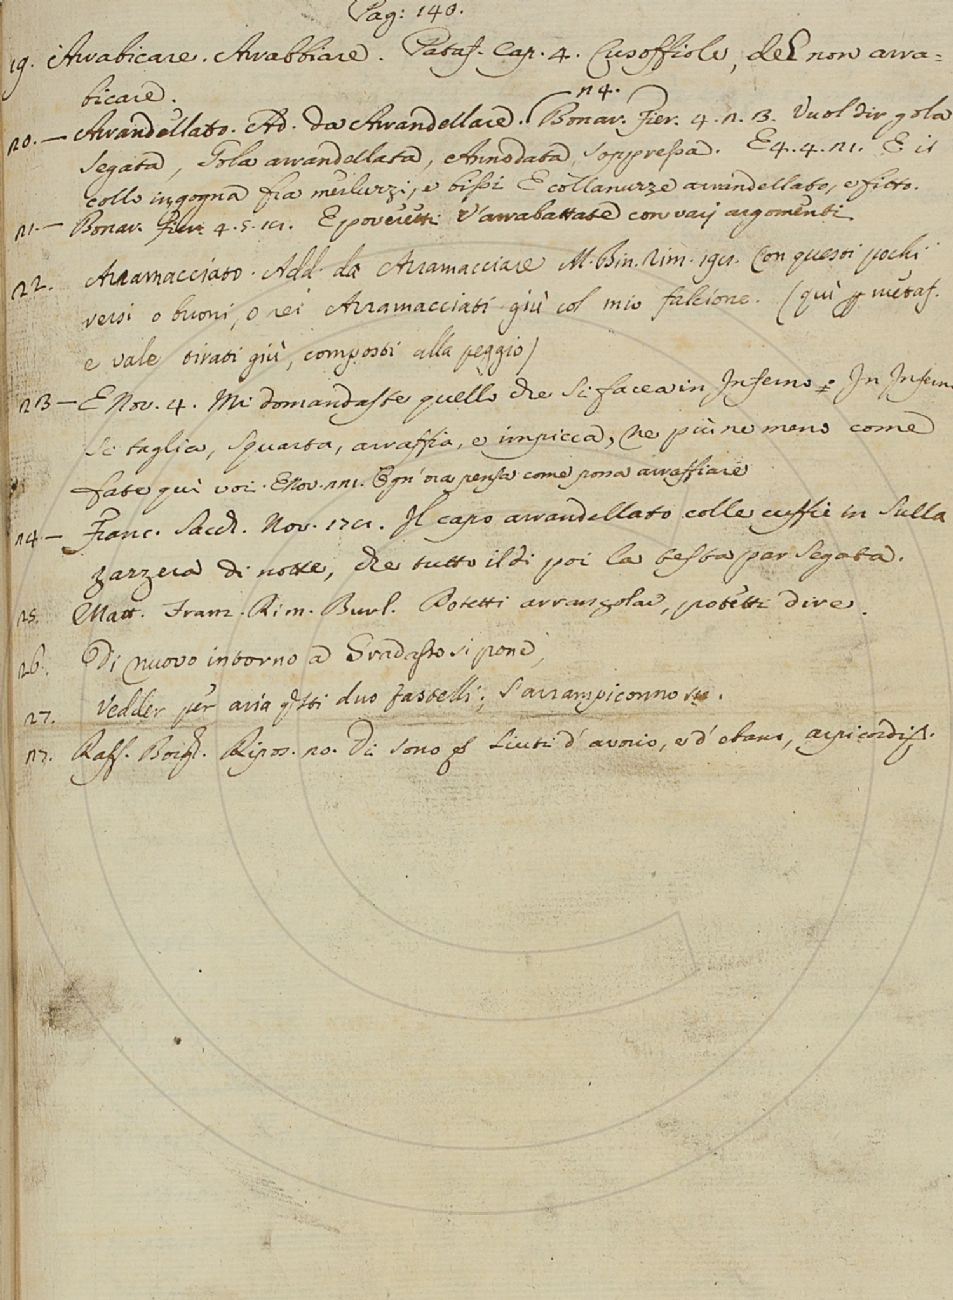 Pag: 140.
19. Arrabicare. Arrabbiare. Pataf. Cap. 4. Cusoffiola, del non arra=
bicare.
n 4.
20. — Arrandellato. Ad. da Arrandellare. (Bonar. Fier. 4. 2. 13. Vuol dir gola
segata, Gola arrandellata, Annodata, soppressa. E 4. 4. 21. E il
collo in gogna fra merluzzi, e bissi E collanuzze arrandellato, e fitto.
21. — Bonar. Fier. 4. 5. E poveretti v'arrabattate con varj argomenti
22. Arramacciato. Add. da Arramacciare M. Bin. Rim. Con questi pochi
versi o buoni, o rei Arramacciati giù col mio falcione. (quì metaf.
e vale tirati giù, composti alla peggio)
23 — E Nov. 4. Mi domandaste quello che si facea in Inferno: In Inferno
si taglia, squarta, arraffia, e impicca, ne più ne meno come
fate quì voi. E Nov. Ogn'ora pensa come possa arraffiare
24 — Franc. Sacch. Nov. Il capo arrandellato colle cuffie in sulla
zazzera di notte, che tutto il dì poi la testa par segata.
25. Matt. Franz. Rim. Burl. Potetti arrangolar, potetti dire.
26. Di nuovo intorno a Gradasso si pone,
27. Vedder per aria duo fastelli; S'arrampiconno su.
Raff. Borgh. Ripos. Di sono Liuti d'avorio, e d'ebano, arpicordi